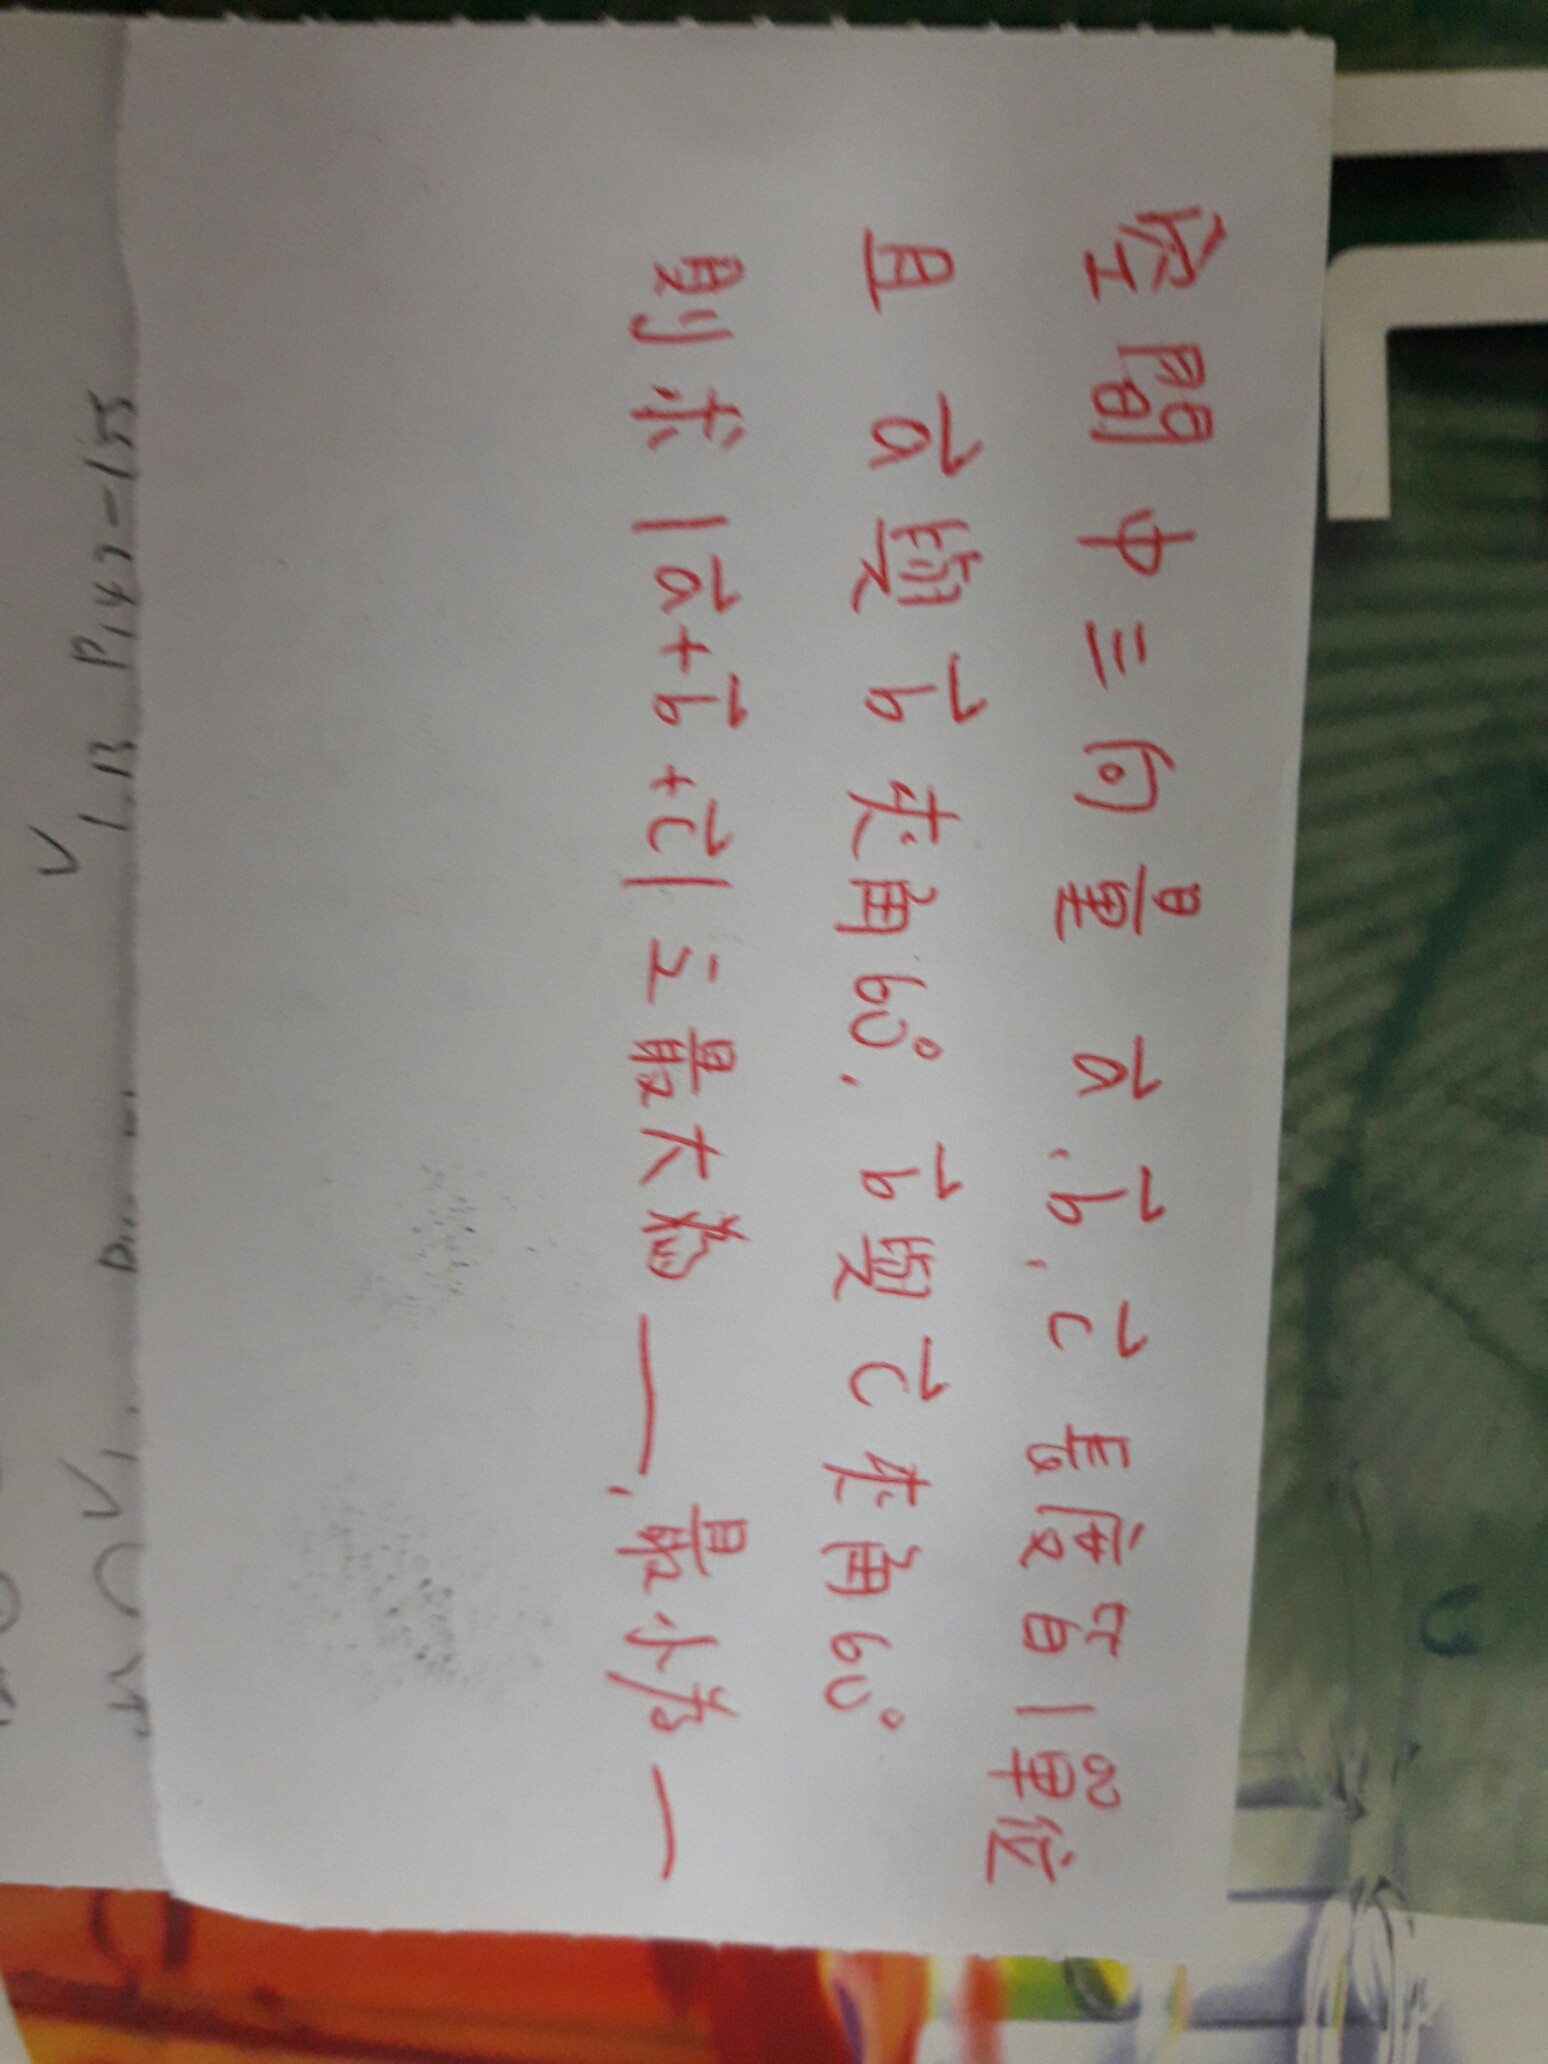 空間中三向量 a⃗, b⃗, c⃗ 長度皆1單位
且 a⃗ 與 b⃗ 夾角60°, b⃗ 與 c⃗ 夾角60°
則求 |a⃗+b⃗+c⃗| 之最大為 ——, 最小為 —
1.13 P147-155